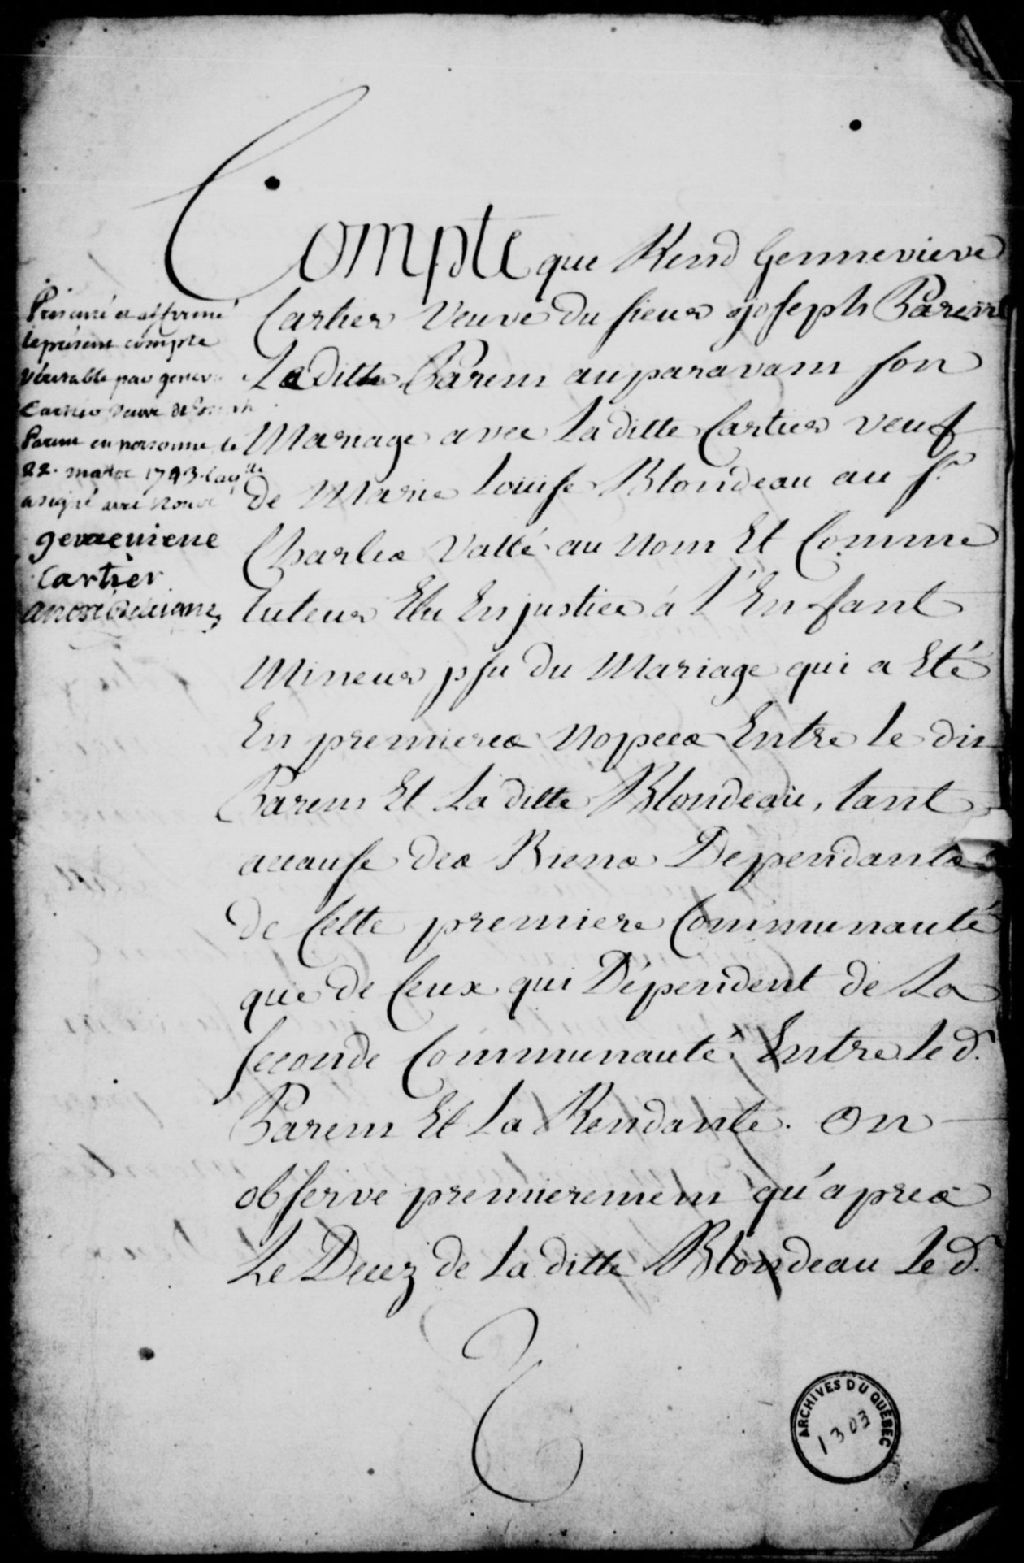 Compte que Rend Gennevieve
Cartier Veuve du sieur Joseph Parent
La ditte Parent auparavant son
Mariage avec La ditte Cartier veuf
de Marie Louise Blondeau au Sr.
Charles Vallé au Nom Et Comme
tuteur Elu En justice à l'Enfant
Mineur yssu du Mariage qui a Eté
En premieres Nopces Entre le dit
Parent Et La ditte Blondeau, tant
acause des Biens Dependants
de Cette premiere Communauté
que de Ceux qui Dépendent de La
seconde Communauté Entre le d.
Parent Et La Rendante. On
observe premierement qu'apres
Le Decez de La ditte Blondeau Le d.
Presenté et afirmé
le present compte
veritable par genev
Cartier veuve de Joseph
Parent en personne le
22. mars 1743. laqlle
a signé avec Nous
genevieve
Cartier
ARCHIVES DU QUÉBEC
1303